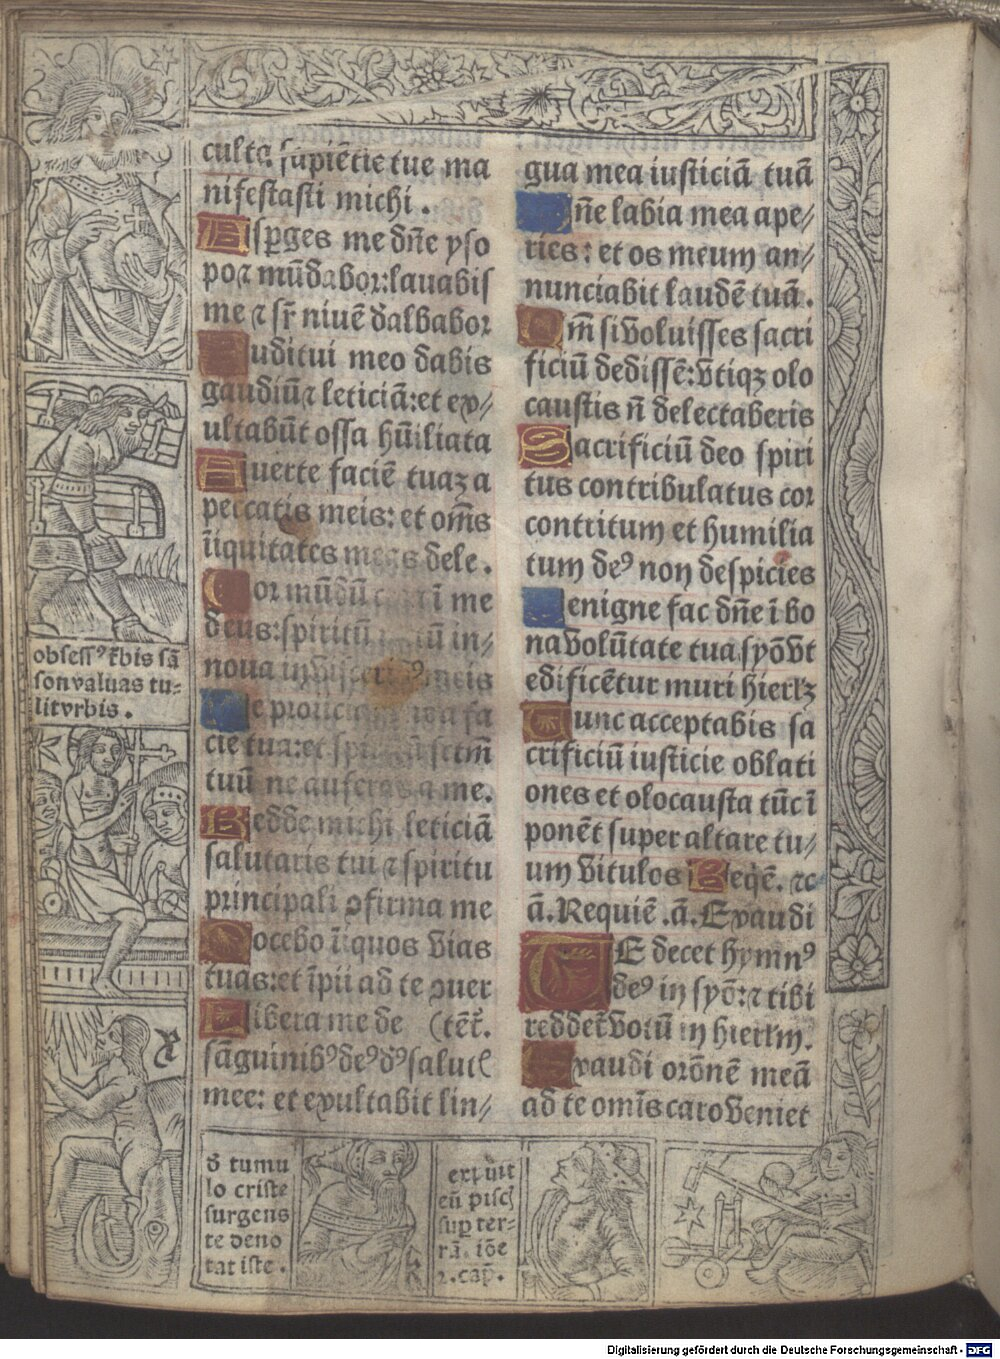 culta sapiẽtie tue ma
nifestasti michi.
Asꝑges me dñe yso
poꝛ mũdaboꝛ:lauabis
me ⁊ sꝛ̃ niuẽ dalbaboꝛ
Auditui meo dabis
gaudiũ⁊ leticiã:et ex⸗
ultabũt ossa hũiliata
Auerte faciẽ tuaꝫ a
peccatis meis: et om̃s
ĩiquitates meas dele.
Cor mũdũ ĩ me
deus:spiritũ in⸗
noua meis
Ne fa
cie tua:et scm̃
tuũ ne auferas a me.
Redde michi leticiã
salutaris tui ⁊ spiritu
principali ꝓfirma me
Docebo ĩiquos vias
tuas:et ĩpii ad te ꝯuer
Libera me de (tẽt.
sãguinibꝰ deꝰ dꝰ salut
mee: et exultabit lin⸗
gua mea iusticiã tuã
Dñe labia mea ape⸗
ries: et os meum an⸗
nunciabit laudẽ tuã.
Qm̃ si voluisses sacri
ficiũ dedissẽ:vtiqꝫ olo
caustis ñ delectaberis
Sacrificiũ deo spiri
tus contribulatus cor
contritum et humilia
tum deꝰ non despicies
Benigne fac dñe ĩ bo
na volũtate tua syõ vt
edificẽtur muri hierlꝫ
Tunc acceptabis sa
crificiũ iusticie oblati
ones et olocausta tũc ĩ
ponẽt super altare tu⸗
um vitulos Reqẽ. ⁊c
ã. Requiẽ .ã. Exaudi
TE decet hymnꝰ
deꝰ in syõ:⁊ tibi
reddet̃ votũ in hierlm̃.
Exaudi orõnẽ meã
ad te om̃is caro veniet
obsessꝰ vrbis sã
son valuas tu⸗
lit vrbis.
d tumu
lo criste
surgens
te deno
tat iste.
expuit
eũ pisc
suꝑ ter⸗
rã. iõe
2. cap̃.
Digitalisierung gefördert durch die Deutsche Forschungsgemeinschaft - DFG